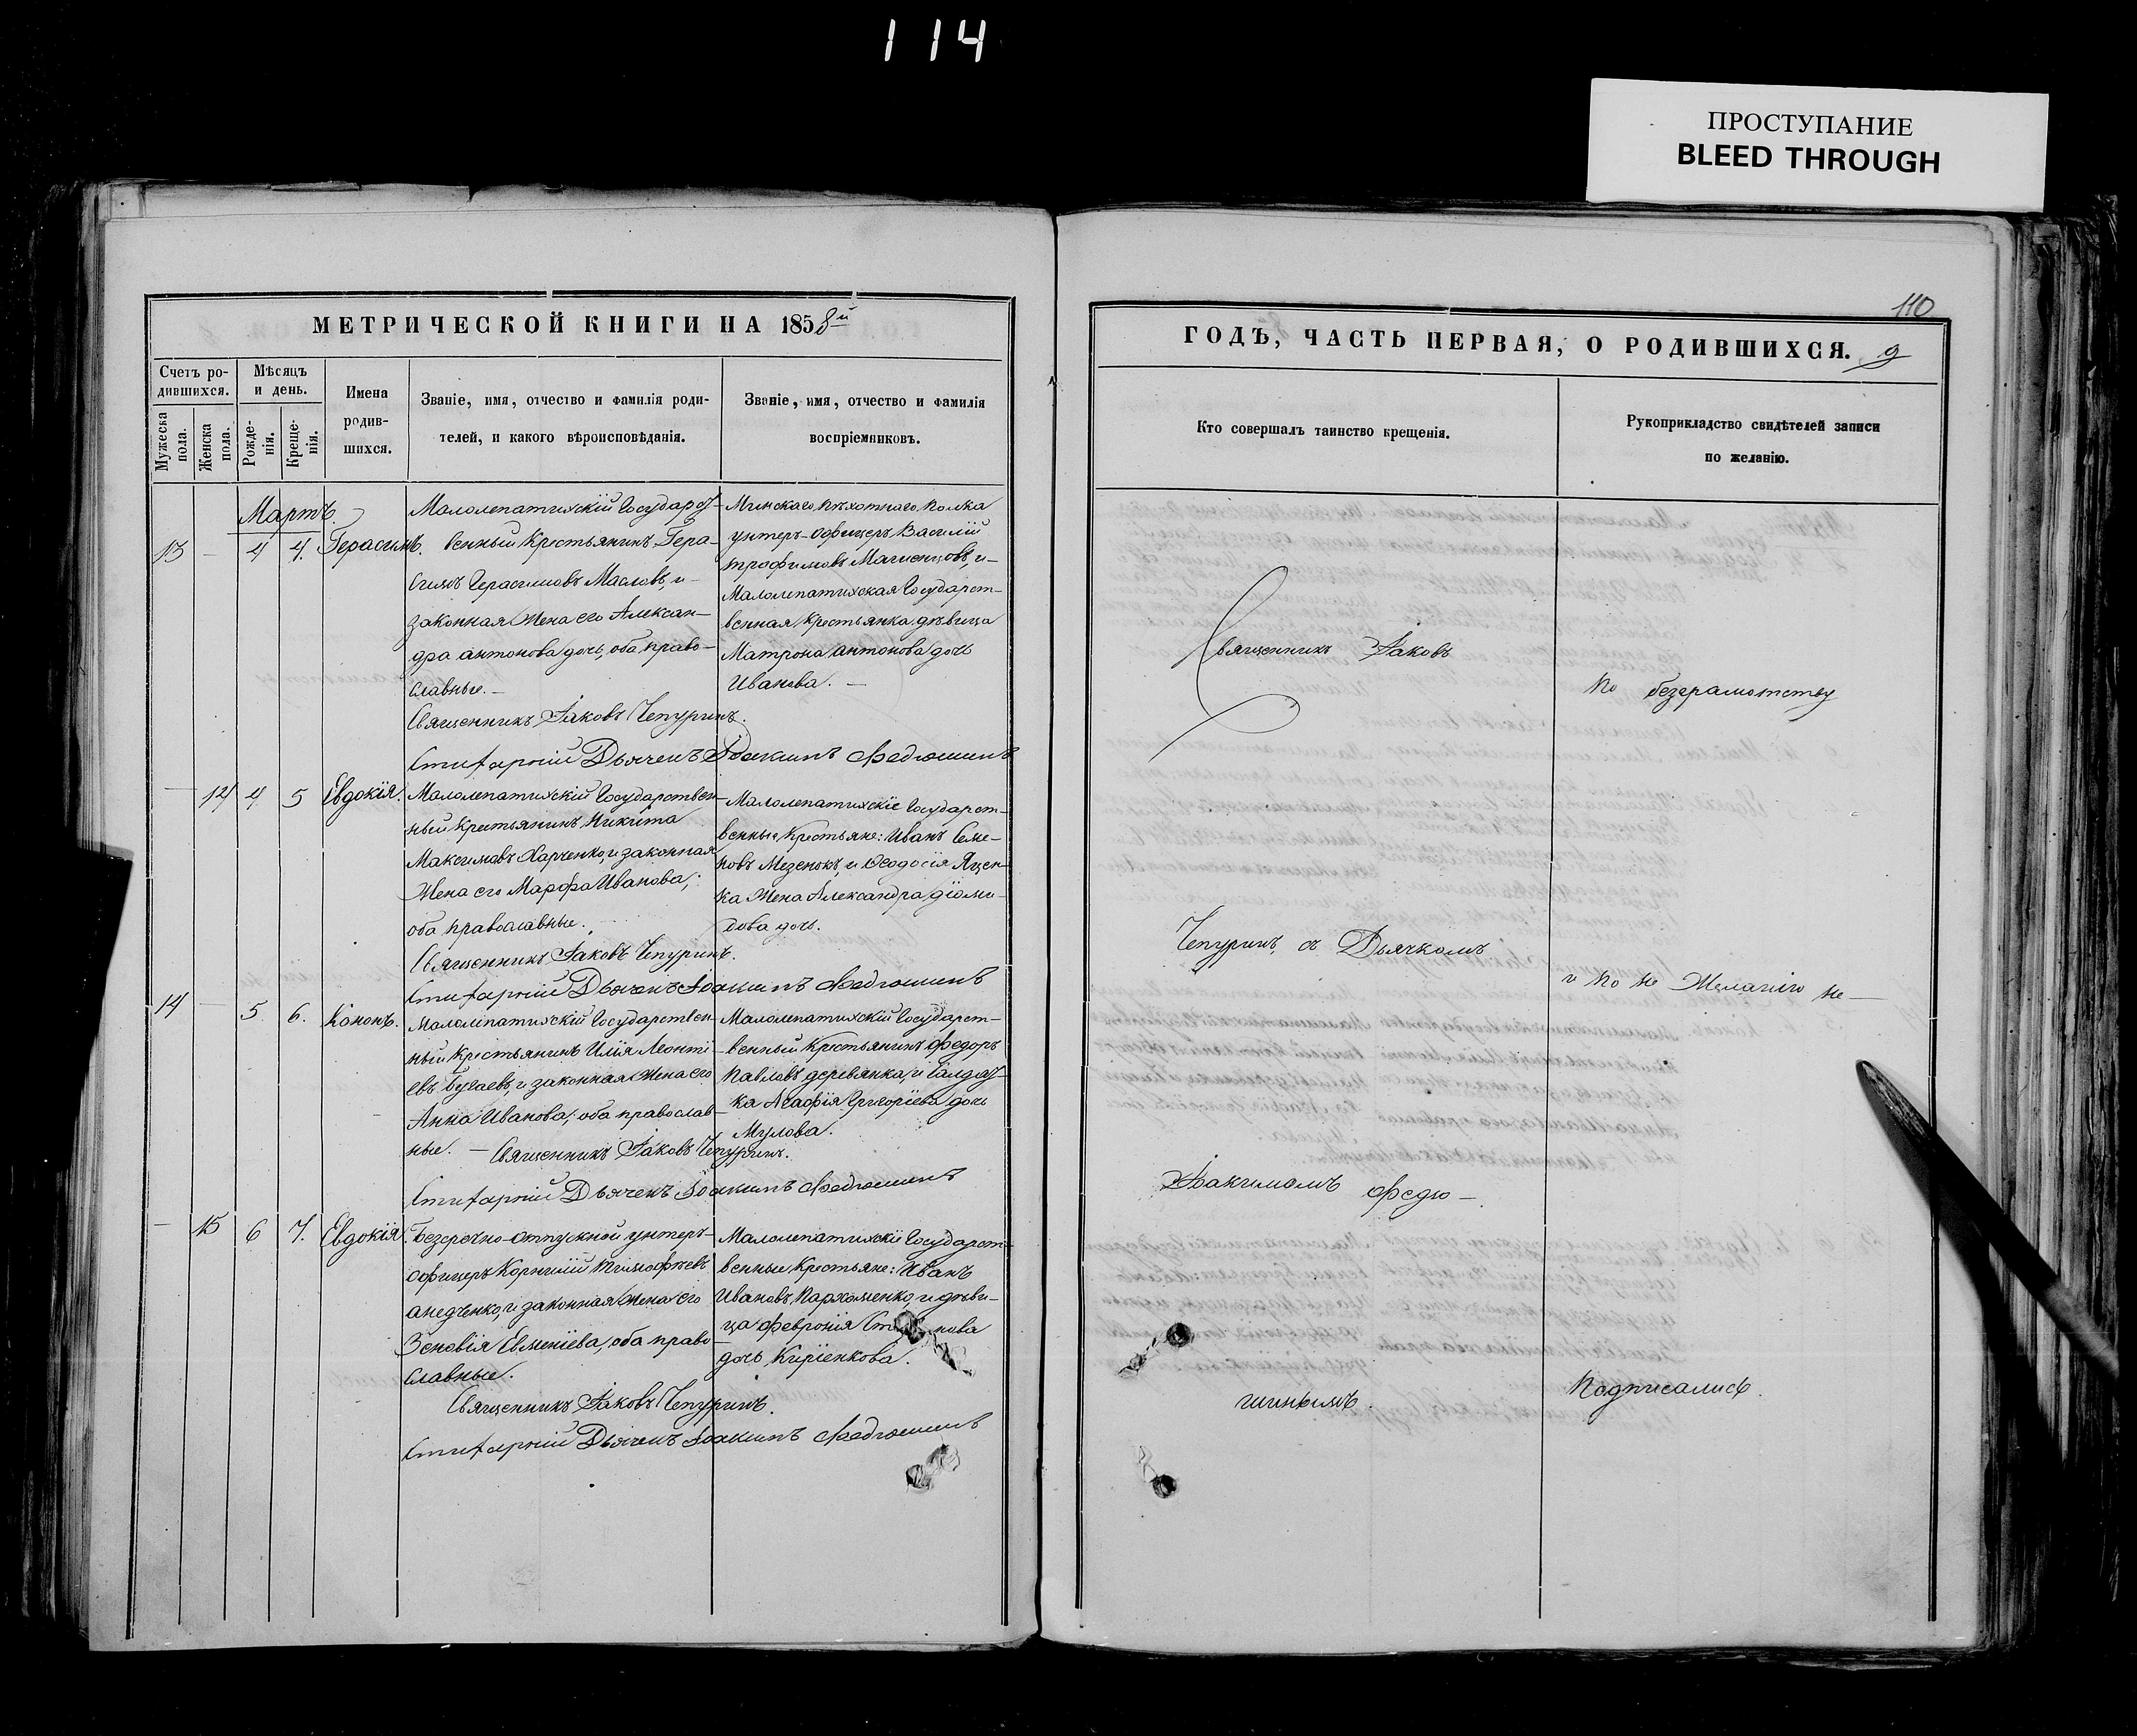 114
ПРОСТУПАНИЕ
BLEED THROUGH
МЕТРИЧЕСКОЙ КНИГИ НА 1858й
Счетъ ро-
дившихся.
Мѣсяцъ
и день.
Мужеска
пола.
Женска
пола.
Рожде-
нія.
Креще-
нія.
Имена
родив-
шихся.
Званіе, имя, отчество и фамилія роди-
телей, и какого вѣроисповѣданія.
Званіе, имя, отчество и фамилія
воспріемниковъ.
Мартъ.
13 — 4 4. Герасимъ.
Малолепатихскій Государст-
венный Крестьянинъ Гера-
симъ Герасимовъ Масловъ, и
законная Жена его Алексан-
дра антонова дочь, оба право-
славные. —
Священникъ Іаковъ Чепуринъ.
Стихарный Дьячекъ Іоакимъ Федюшинъ
Минскаго Пѣхотнаго Полка
унтеръ-офицеръ Василій
трофимовъ и —
Малолепатихская Государст-
венная Крестьянка дѣвица
Матрона антонова дочь
Иванова. —
— 14 4 5 Евдокія.
Малолепатихскій Государствен-
ный Крестьянинъ Никита
Максимовъ Харченко, и законная
Жена его Марфа Иванова,
оба православные.
Священникъ Іаковъ Чепуринъ.
Стихарный Дьячекъ Іоакимъ Федюшинъ
Малолепатихскіе Государст-
венные Крестьяне: Иванъ Семе-
новъ и Феодосія Яцен-
ка Жена Александра діоми-
дова дочь.
14 — 5 6. Кононъ.
Малолепатихскій Государствен-
ный Крестьянинъ Илія Леонті-
евъ Бугаевъ, и законная Жена его
Анна Иванова, оба православ-
ные. — Священникъ Іаковъ Чепуринъ.
Стихарный Дьячекъ Іоакимъ Федюшинъ
Малолепатихскій Государст-
венный Крестьянинъ Федоръ
Павловъ деревянка, и
ка Агафія Григоріева дочь
Мулова.
— 15 6 7. Евдокія.
Безсрочно-отпускной унтеръ-
офицеръ Корнилій тимофѣевъ
и законная Жена его
Зеновія Евменіева, оба право-
славные.
Священникъ Іаковъ Чепуринъ.
Стихарный Дьячекъ Іоакимъ Федюшинъ
Малолепатихскіе Государст-
венные Крестьяне: Иванъ
Ивановъ Пархоменко, и дѣви-
ца Февронія
дочь Киріенкова.
110
ГОДЪ, ЧАСТЬ ПЕРВАЯ, О РОДИВШИХСЯ. 9
Кто совершалъ таинство крещенія.
Рукоприкладство свидѣтелей записи
по желанію.
Священникъ Іаковъ
Чепуринъ, съ Дьячкомъ
Іоакимомъ Федю —
шинымъ.
По безграмотству
и по не Желанію не —
Подписались.